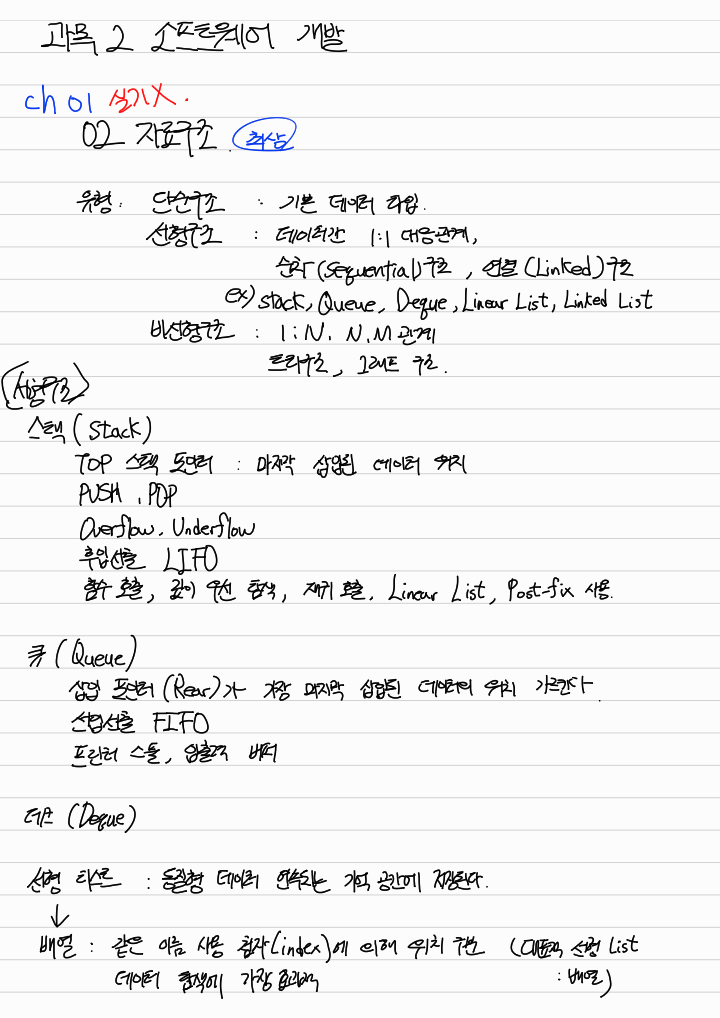 과목 2 소프트웨어 개발
ch 01 실기X.
02 자료구조. 최상
유형 : 단순구조 : 기본 데이터 타입.
선형구조 : 데이터간 1:1 대응관계,
순차(Sequential)구조, 연결(Linked)구조
ex) stack, Queue, Deque, Linear List, Linked List
비선형구조 : 1:N, N.M 관계
트리구조, 그래프 구조.
(선형구조)
스택(Stack)
TOP 스택 포인터 : 마지막 삽입된 데이터 위치
PUSH, POP
Overflow, Underflow
후입선출 LIFO
함수 호출, 깊이 우선 탐색, 재귀 호출, Linear List, Post-fix 사용.
큐(Queue)
삽입 포인터(Rear)가 가장 마지막 삽입된 데이터의 위치 가르킨다.
선입선출 FIFO
프린터 스풀, 입출력 버퍼
데크 (Deque)
선형 리스트 : 동질형 데이터 연속되는 기억 공간에 저장된다.
↓
배열 : 같은 이름 사용 첨자(index)에 의해 위치 구분 (대표적 선형 List
데이터 탐색에 가장 효과적 : 배열)